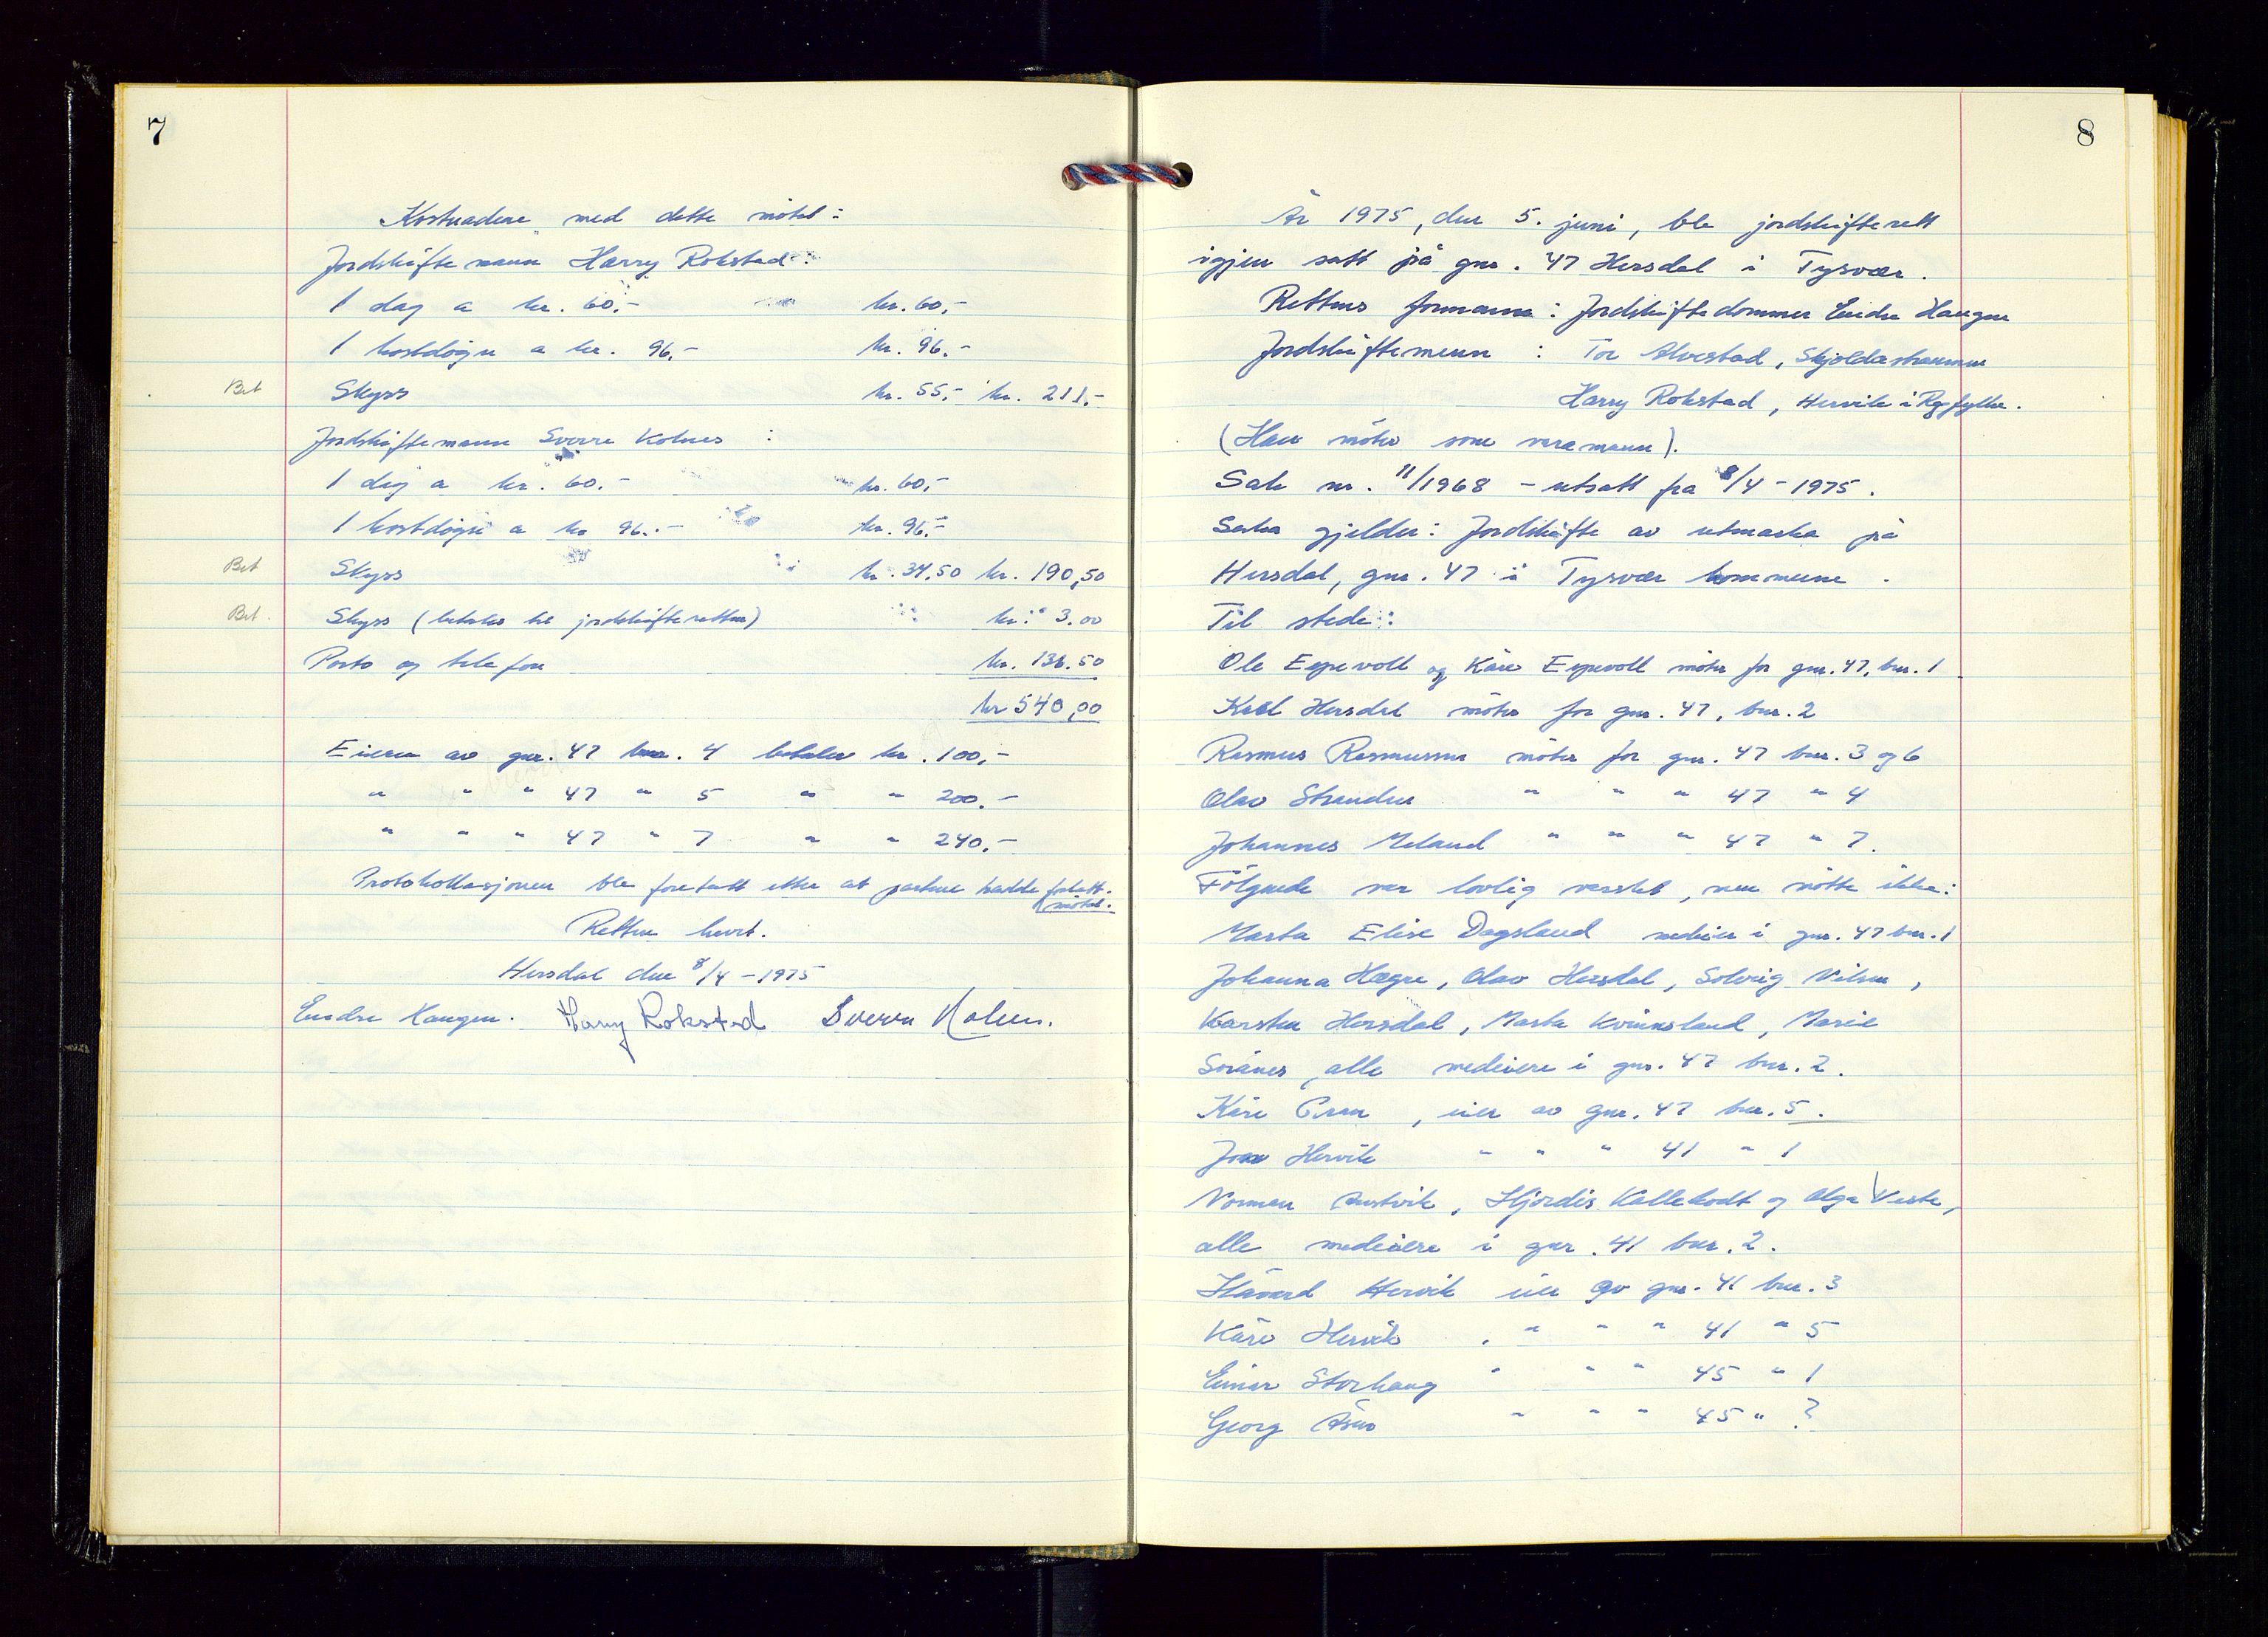 7
Kostnadene med dette møtet:
Jordskiftemann Harry Rokstad:
1 dag a kr. 60.- kr. 60.-
1 kostdøgn a kr. 96.- kr. 96.-
Bet Skyss kr. 55.- kr. 211.-
Jordskiftemann Sverre Kolnes :
1 dag a kr. 60.- kr. 60.-
1 kostdøgn a kr 96.- kr. 96.-
Bet Skyss kr. 34,50 kr. 190,50
Bet. Skyss (betales til jordskifteretten) kr. 3.00
Porto og telefon kr. 136.50
kr 540,00
Eieren av gnr. 47 bnr. 4 betaler kr. 100,-
" " " 47 " 5 " " 200.-
" " " 47 " 7 " " 240.-
Protokollasjonen ble foretatt etter at partene hadde forlatt
møtet.
Retten hevet.
Hersdal den 8/4 - 1975
Endre Haugen. Harry Rokstad Sverre Kolnes.
8
År 1975, den 5. juni, ble jordskifterett
igjen satt på gnr. 47 Hersdal i Tysvær.
Rettens formann : Jordskiftedommer Endre Haugen
Jordskiftemenn : Tor Alvestad, Skjoldastraumen
Harry Rokstad, Hervik i Ryfylke.
(Han møter som varamann).
Sak nr. 11/1968 - utsatt fra 8/4 - 1975.
Saka gjelder: Jordskifte av utmarka på
Hersdal, gnr. 47 i Tysvær kommune.
Til stede:
Ole Espevoll og Kåre Espevoll møter for gnr. 47, bnr. 1
Karl Hersdal møter for gnr. 47, bnr. 2
Rasmus Rasmussen møter for gnr. 47 bnr. 3 og 6
Olav Stranden " " " 47 " 4
Johannes Meland " " " 47 " 7.
Følgende var lovlig varslet, men møtte ikke:
Marta Elise Dagsland medeier i gnr. 47 bnr. 1
Johanna Hægre, Olav Hersdal, Solveig Nilsen,
Karsten Hersdal, Marta Kvinnsland, Marie
alle medeiere i gnr. 47 bnr. 2.
Kåre , eier av gnr. 47 bnr. 5.
Jon Hervik " " " 41 " 1
Norman Austvik, Hjørdis Kallekodt og Olga Veste,
alle medeiere i gnr. 41 bnr. 2.
Håvard Hervik eier av gnr. 41 bnr. 3
Kåre Hervik " " " 41 " 5
Einar Storhaug " " " 45 " 1
Georg " " " 45 "